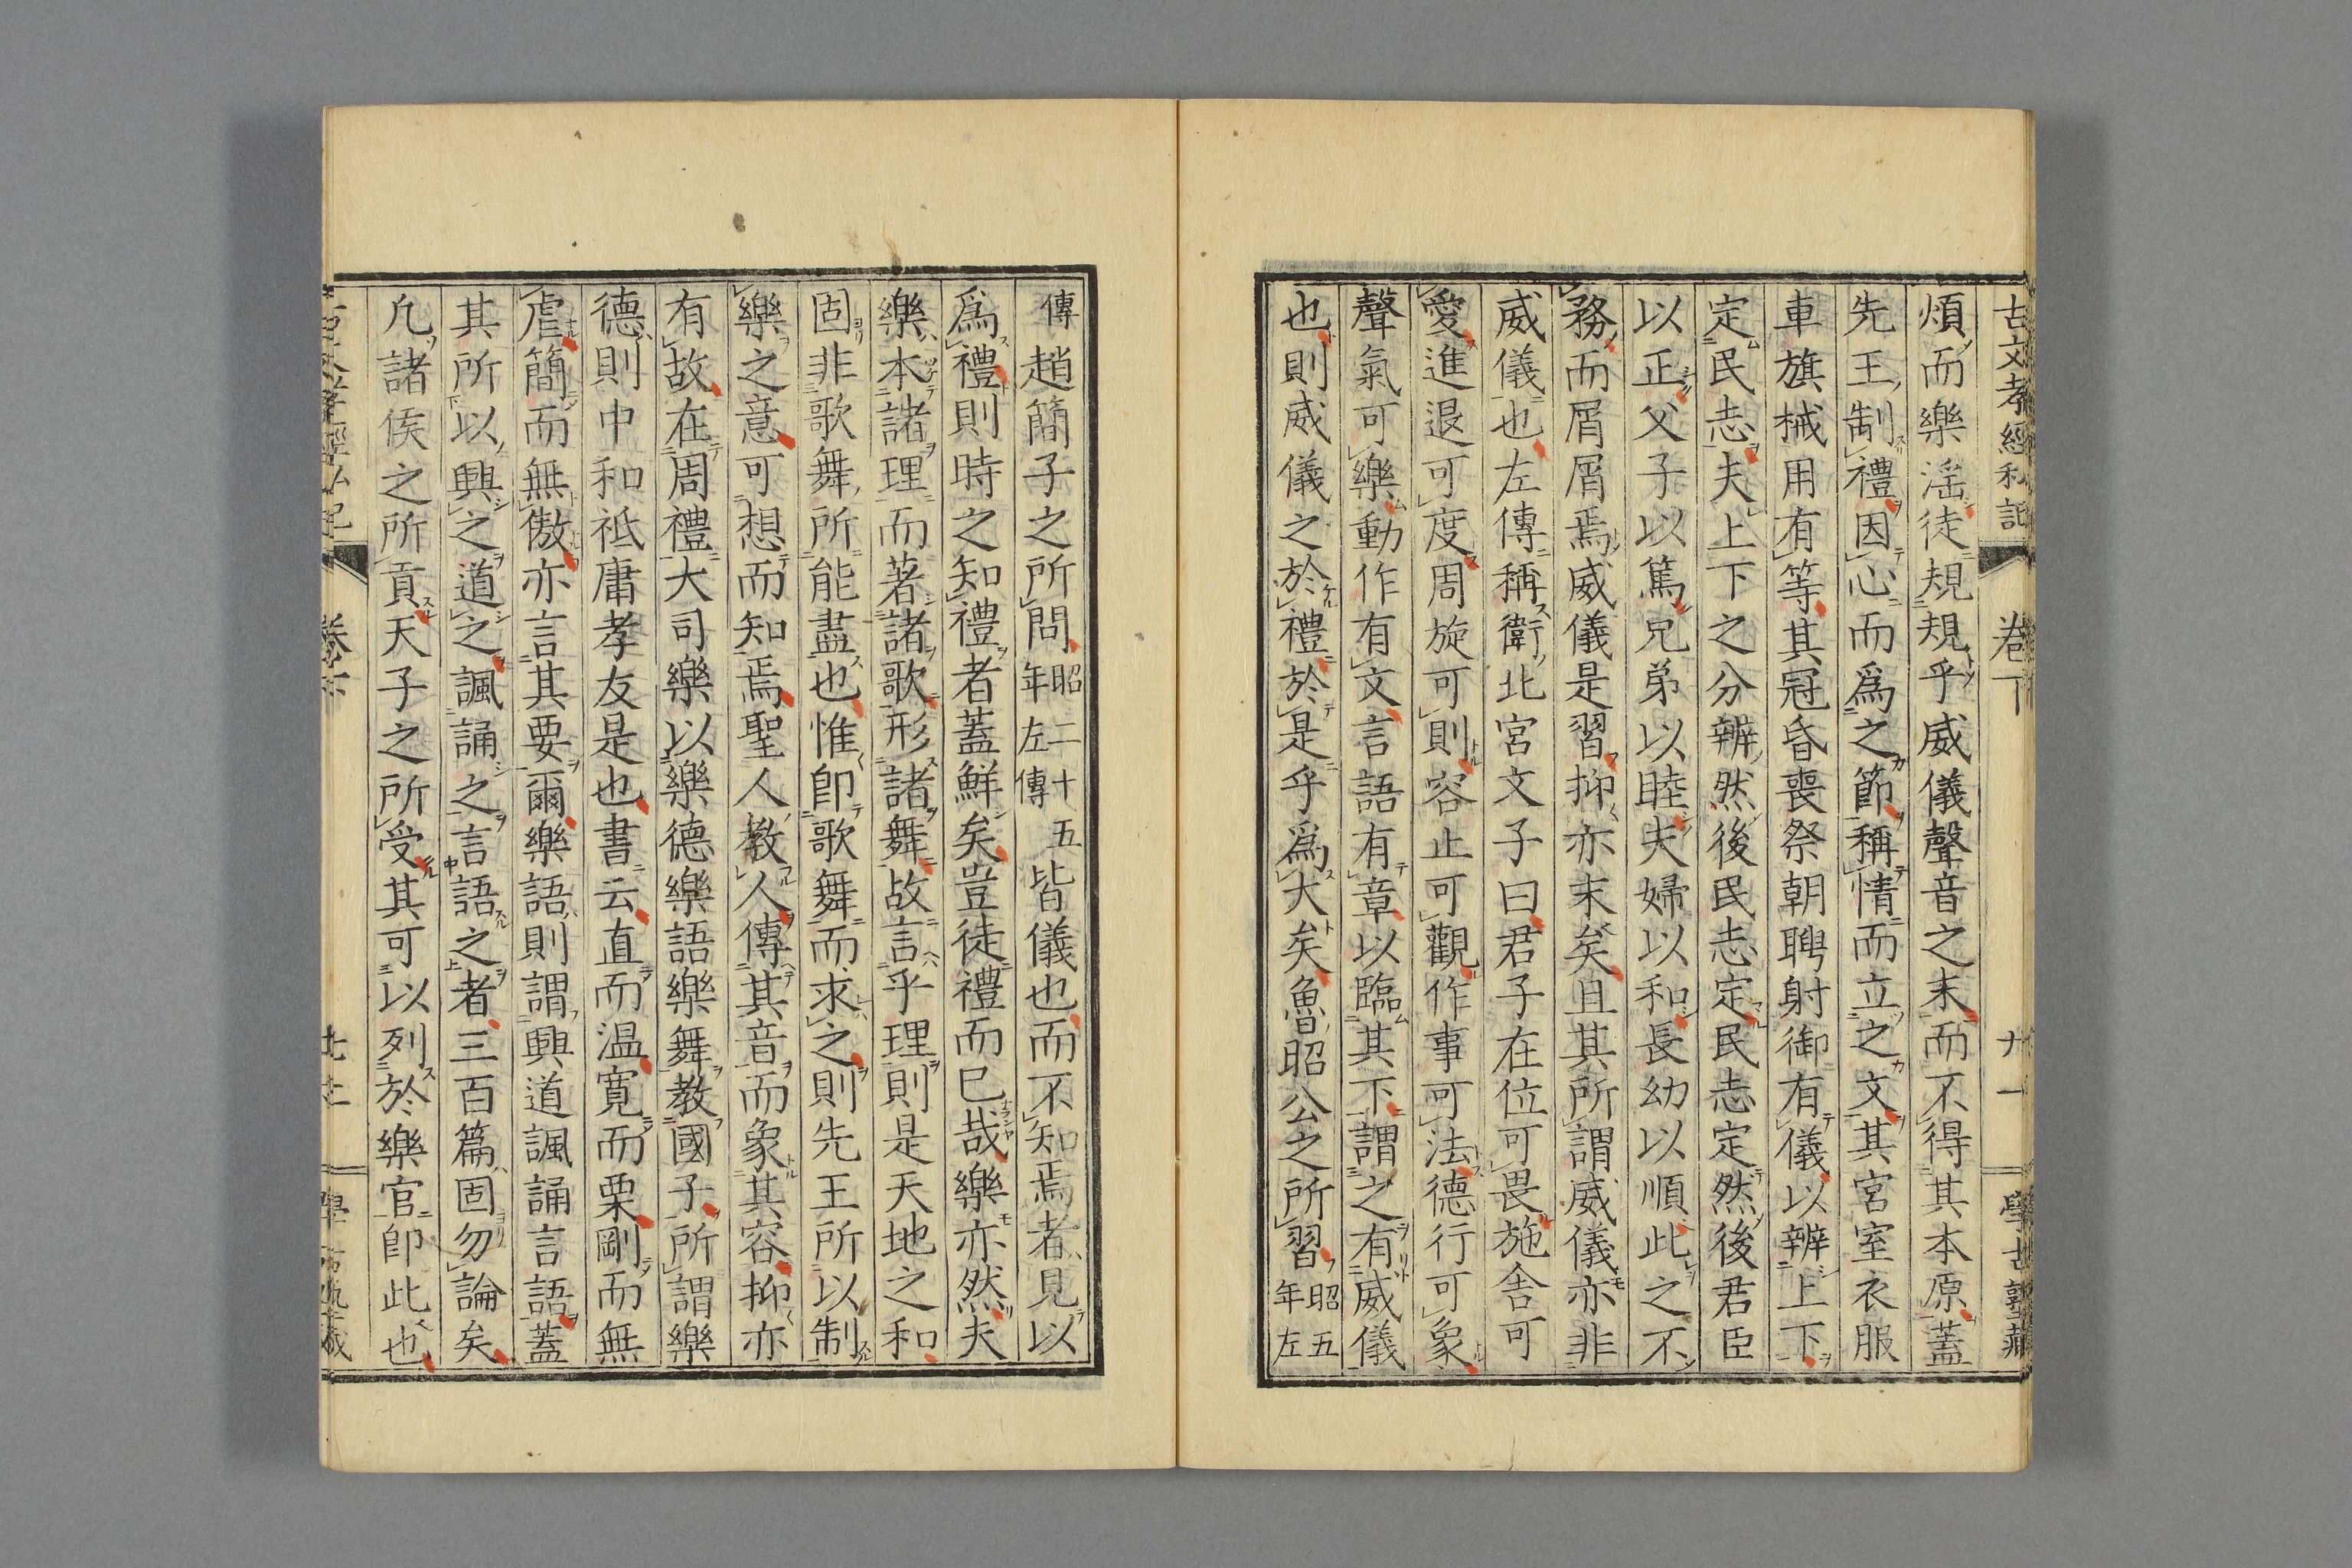 古文孝經私記 卷下 廿一 學古塾藏
煩而樂淫徒規規乎威儀聲音之末而不得其本原蓋
先王制禮因心而爲之節稱情而立之文其宮室衣服
車旗械用有等其冠昏喪祭朝聘射御有儀以辨上下
定民志夫上下之分辨然後民志定民志定然後君臣
以正父子以篤兄弟以睦夫婦以和長幼以順此之不
務而屑屑焉威儀是習抑亦末矣且其所謂威儀亦非
威儀也左傳稱衛北宮文子曰君子在位可畏施舍可
愛進退可度周旋可則容止可觀作事可法德行可象
聲氣可樂動作有文言語有章以臨其下謂之有威儀
也則威儀之於禮於是乎爲大矣魯昭公之所習昭五年左
傳趙簡子之所問昭二十五年左傳皆儀也而不知焉者見以
爲禮則時之知禮者蓋鮮矣豈徒禮而已哉樂亦然夫
樂本諸理而著諸歌形諸舞故言乎理則是天地之和
固非歌舞所能盡也惟卽歌舞而求之則先王所以制
樂之意可想而知焉聖人教人傳其音而象其容抑亦
有故在周禮大司樂以樂德樂語樂舞教國子所謂樂
德則中和祗庸孝友是也書云直而溫寬而栗剛而無
虐簡而無傲亦言其要爾樂語則謂興道諷誦言語蓋
其所以興之道之諷誦之言語之者三百篇固勿論矣
凡諸侯之所貢天子之所受其可以列於樂官卽此也